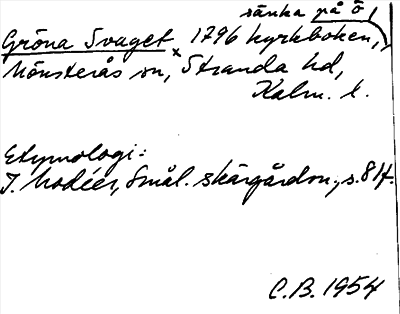 sänka på ö,
Gröna Svaget x 1796 kyrkboken,
Mönsterås sn, Stranda hd,
Kalm. l.
Etymologi:
I. Modéer, Smål. skärgårdsn., s. 81f.
C.B. 1954